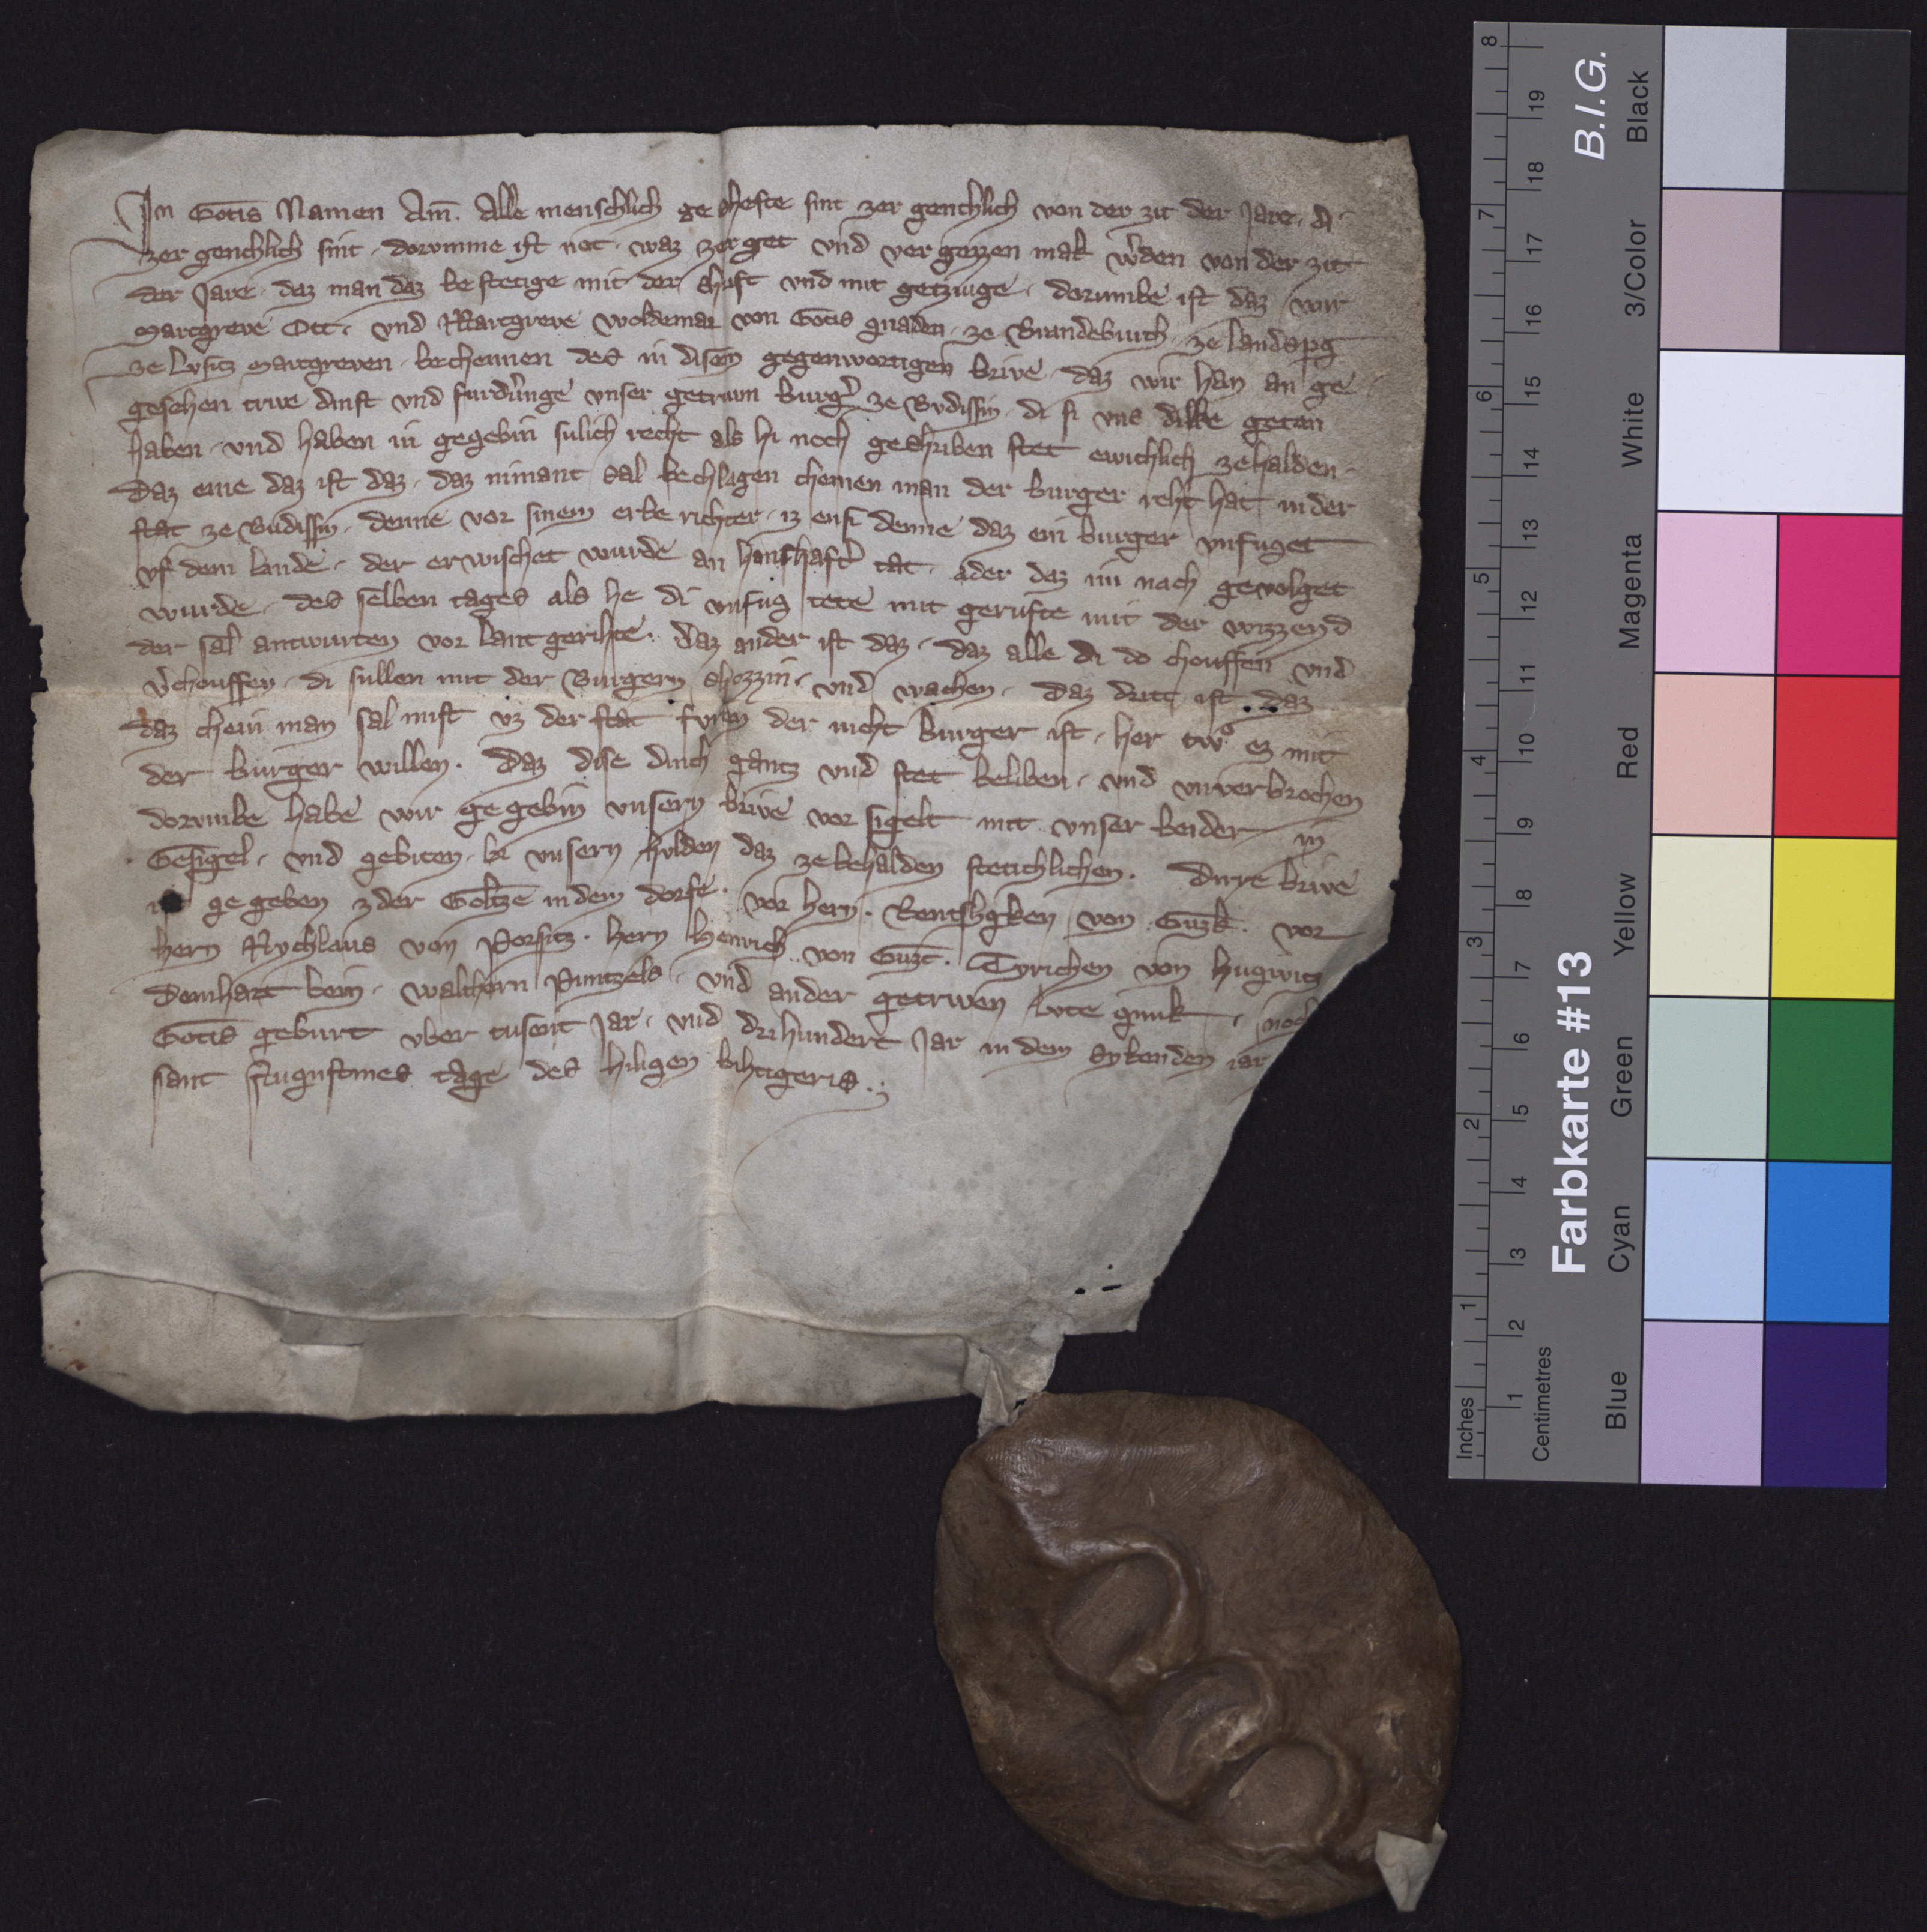 In Gotis Namen Am̄. Alle menschlich ge shefte sint zer genchlich von der zit der Jare. di
zer genchlich sint. dorumme ist not. waz zer get vnd ver gezzen mak w̓den von der zit
der Jare. daz man daz be stetige mit der shrift vnd mit getzuige. dorumbe ist daz wir
Marcgreve Ott. vnd Marcgreve Woldemar von Gotis gnaden. ze Brandeburch. ze landspg
ze lvsitz marcgreven. bechennen des in disem gegenwortigen brive. daz wir han an ge
gesehen trwe dinst vnd furdrunge vnser getruwn burg̓ ze Bvdissin. di si vns dikke getan
haben. vnd haben in gegebin sulich recht als hi noch geshriben stet ewichlich zehalden.
Daz eine daz ist daz. daz nimant sal bechlagen cheinen man der burger reht hat in der
stat ze Budissin. denne vor sinem erbe richter. iz ensi denne daz ein burger vnfuget
vf dem lande. der erwischet wurde an hanthaft̓ tat. ader daz im nach gevolget
wurde. des selben tages als he di vnfug tete mit gerufte mit der wizzend
der sal antwurten vor lant gerihte. Daz ander ist daz. daz alle di do chouffen vnd
v̓chouffen. di sullen mit der Burgern shozzin. vnd wachen. Daz dritt ist daz
daz chein man sal mist vz der stat fvren der nieht burger ist. her twͦ ez mit
der burger willen. Daz dise dinch gantz vnd stet beliben. vnd vnverbrochen
dorumbe habe wir ge gebin vnsern brive vor sigelt mit vnser beider in
Gesigel. vnd gebiten. bi vnsern hulden daz ze behalden stetichlichen. Dirre brive
ist ge geben zder Goltze in dem dorfe. vor hern. von Guzk. vor
hern Rychlaus von Porsitz. hern Henrich von Guzc. Tyrichen von Hugwitz
Bernhart bein. walthern Puntzels. vnd ander getrwen lvte gnuk. noch
Gotis geburt vber tusent Jar. vnd drihundert Jar in dem sybenden iar
sant Augustines tage des hiligen bihtigeris.
Inches
Centimetres
1 2 3 4 5 6 7 8
1 2 3 4 5 6 7 8 9 10 11 12 13 14 15 16 17 18 19
Farbkarte #13
B.I.G.
Blue
Cyan
Green
Yellow
Red
Magenta
White
3/Color
Black